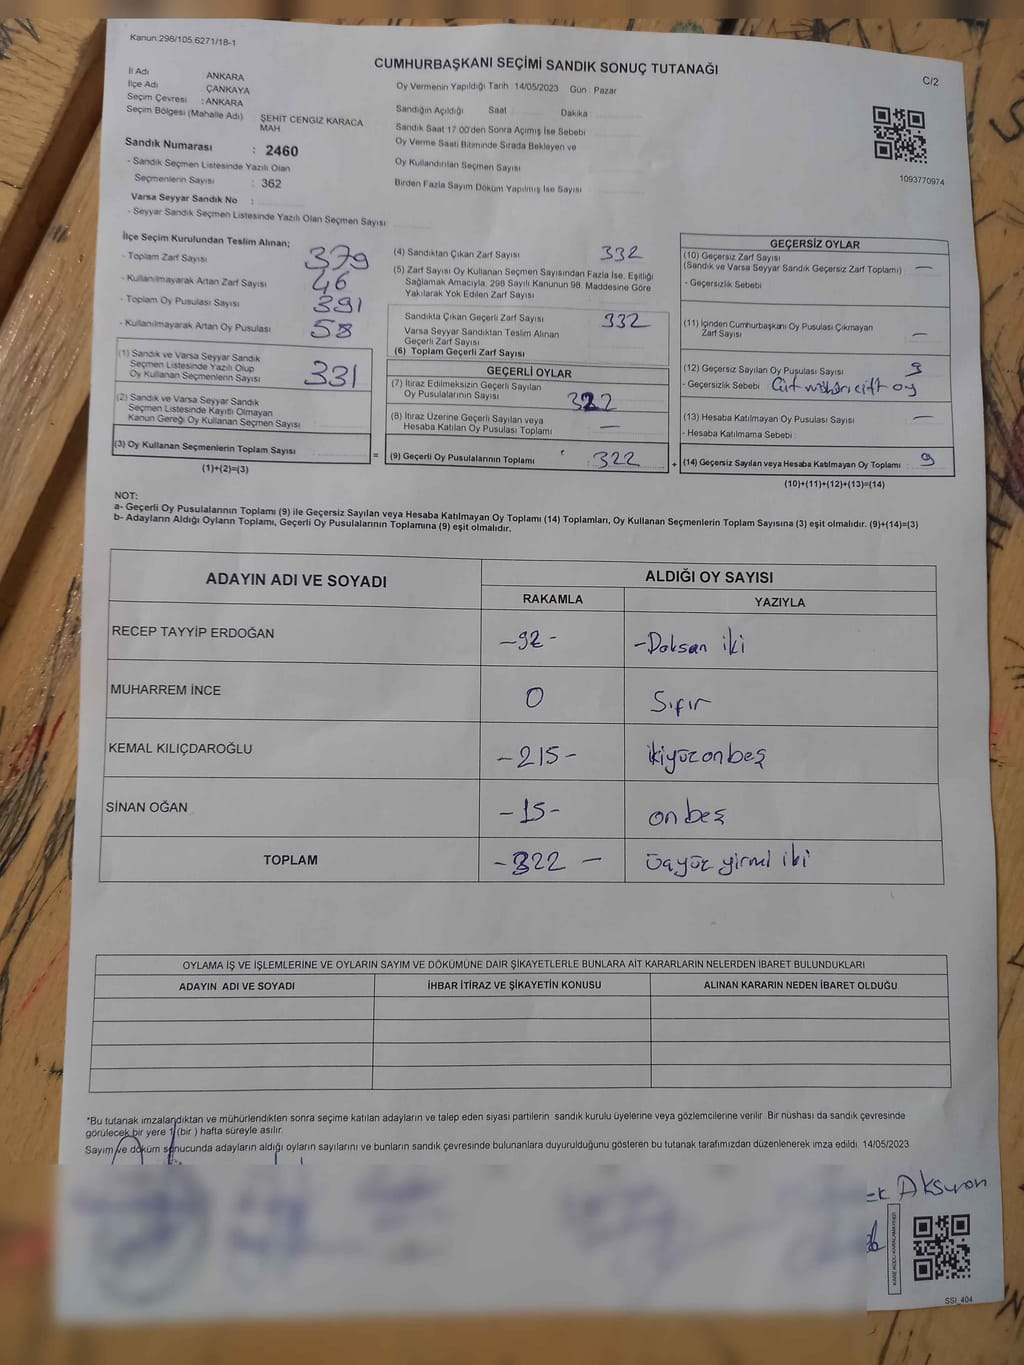 Kanun:298/105,6271/18-1
CUMHURBAŞKANI SEÇİMİ SANDIK SONUÇ TUTANAĞI
C/2
İl Adı ANKARA
İlçe Adı ÇANKAYA
Seçim Çevresi : ANKARA
Seçim Bölgesi (Mahalle Adı) ŞEHİT CENGİZ KARACA MAH
Sandık Numarası : 2460
- Sandık Seçmen Listesinde Yazılı Olan
Seçmenlerin Sayısı : 362
Varsa Seyyar Sandık No :
- Seyyar Sandık Seçmen Listesinde Yazılı Olan Seçmen Sayısı
Oy Vermenin Yapıldığı Tarih : 14/05/2023 Gün : Pazar
Sandığın Açıldığı Saat Dakika
Sandık Saat 17:00'den Sonra Açımış İse Sebebi
Oy Verme Saati Bitiminde Sırada Bekleyen ve
Oy Kullandırılan Seçmen Sayısı
Birden Fazla Sayım Döküm Yapılmış İse Sayısı
1093770974
İlçe Seçim Kurulundan Teslim Alınan;
- Toplam Zarf Sayısı 379
- Kullanılmayarak Artan Zarf Sayısı 46
- Toplam Oy Pusulası Sayısı 391
- Kullanılmayarak Artan Oy Pusulası 58
(1) Sandık ve Varsa Seyyar Sandık
Seçmen Listesinde Yazılı Olup
Oy Kullanan Seçmenlerin Sayısı 331
(2) Sandık ve Varsa Seyyar Sandık
Seçmen Listesinde Kayıtlı Olmayan
Kanun Gereği Oy Kullanan Seçmen Sayısı
(3) Oy Kullanan Seçmenlerin Toplam Sayısı
(1)+(2)=(3)
(4) Sandıktan Çıkan Zarf Sayısı 332
(5) Zarf Sayısı Oy Kullanan Seçmen Sayısından Fazla İse, Eşitliği
Sağlamak Amacıyla, 298 Sayılı Kanunun 98. Maddesine Göre
Yakılarak Yok Edilen Zarf Sayısı
Sandıkta Çıkan Geçerli Zarf Sayısı 332
Varsa Seyyar Sandıktan Teslim Alınan
Geçerli Zarf Sayısı
(6) Toplam Geçerli Zarf Sayısı
GEÇERLİ OYLAR
(7) İtiraz Edilmeksizin Geçerli Sayılan
Oy Pusulalarının Sayısı 322
(8) İtiraz Üzerine Geçerli Sayılan veya
Hesaba Katılan Oy Pusulası Toplamı —
= (9) Geçerli Oy Pusulalarının Toplamı 322
GEÇERSİZ OYLAR
(10) Geçersiz Zarf Sayısı
(Sandık ve Varsa Seyyar Sandık Geçersiz Zarf Toplamı) —
- Geçersizlik Sebebi
(11) İçinden Cumhurbaşkanı Oy Pusulası Çıkmayan
Zarf Sayısı —
(12) Geçersiz Sayılan Oy Pusulası Sayısı 9
- Geçersizlik Sebebi Çift mühür çift oy
(13) Hesaba Katılmayan Oy Pusulası Sayısı —
- Hesaba Katılmama Sebebi :
+ (14) Geçersiz Sayılan veya Hesaba Katılmayan Oy Toplamı 9
(10)+(11)+(12)+(13)=(14)
NOT:
a- Geçerli Oy Pusulalarının Toplamı (9) ile Geçersiz Sayılan veya Hesaba Katılmayan Oy Toplamı (14) Toplamları, Oy Kullanan Seçmenlerin Toplam Sayısına (3) eşit olmalıdır. (9)+(14)=(3)
b- Adayların Aldığı Oyların Toplamı, Geçerli Oy Pusulalarının Toplamına (9) eşit olmalıdır.
ADAYIN ADI VE SOYADI ALDIĞI OY SAYISI
RAKAMLA YAZIYLA
RECEP TAYYİP ERDOĞAN -92- -Doksan iki
MUHARREM İNCE 0 Sıfır
KEMAL KILIÇDAROĞLU -215- ikiyüzonbeş
SİNAN OĞAN -15- onbeş
TOPLAM -322- üçyüz yirmi iki
OYLAMA İŞ VE İŞLEMLERİNE VE OYLARIN SAYIM VE DÖKÜMÜNE DAİR ŞİKAYETLERLE BUNLARA AİT KARARLARIN NELERDEN İBARET BULUNDUKLARI
ADAYIN ADI VE SOYADI İHBAR İTİRAZ VE ŞİKAYETİN KONUSU ALINAN KARARIN NEDEN İBARET OLDUĞU
*Bu tutanak imzalandıktan ve mühürlendikten sonra seçime katılan adayların ve talep eden siyasi partilerin sandık kurulu üyelerine veya gözlemcilerine verilir. Bir nüshası da sandık çevresinde
görülecek bir yere 1 (bir) hafta süreyle asılır.
Sayım ve döküm sonucunda adayların aldığı oyların sayılarını ve bunların sandık çevresinde bulunanlara duyurulduğunu gösteren bu tutanak tarafımızdan düzenlenerek imza edildi. 14/05/2023
Aksyon
SSI_404